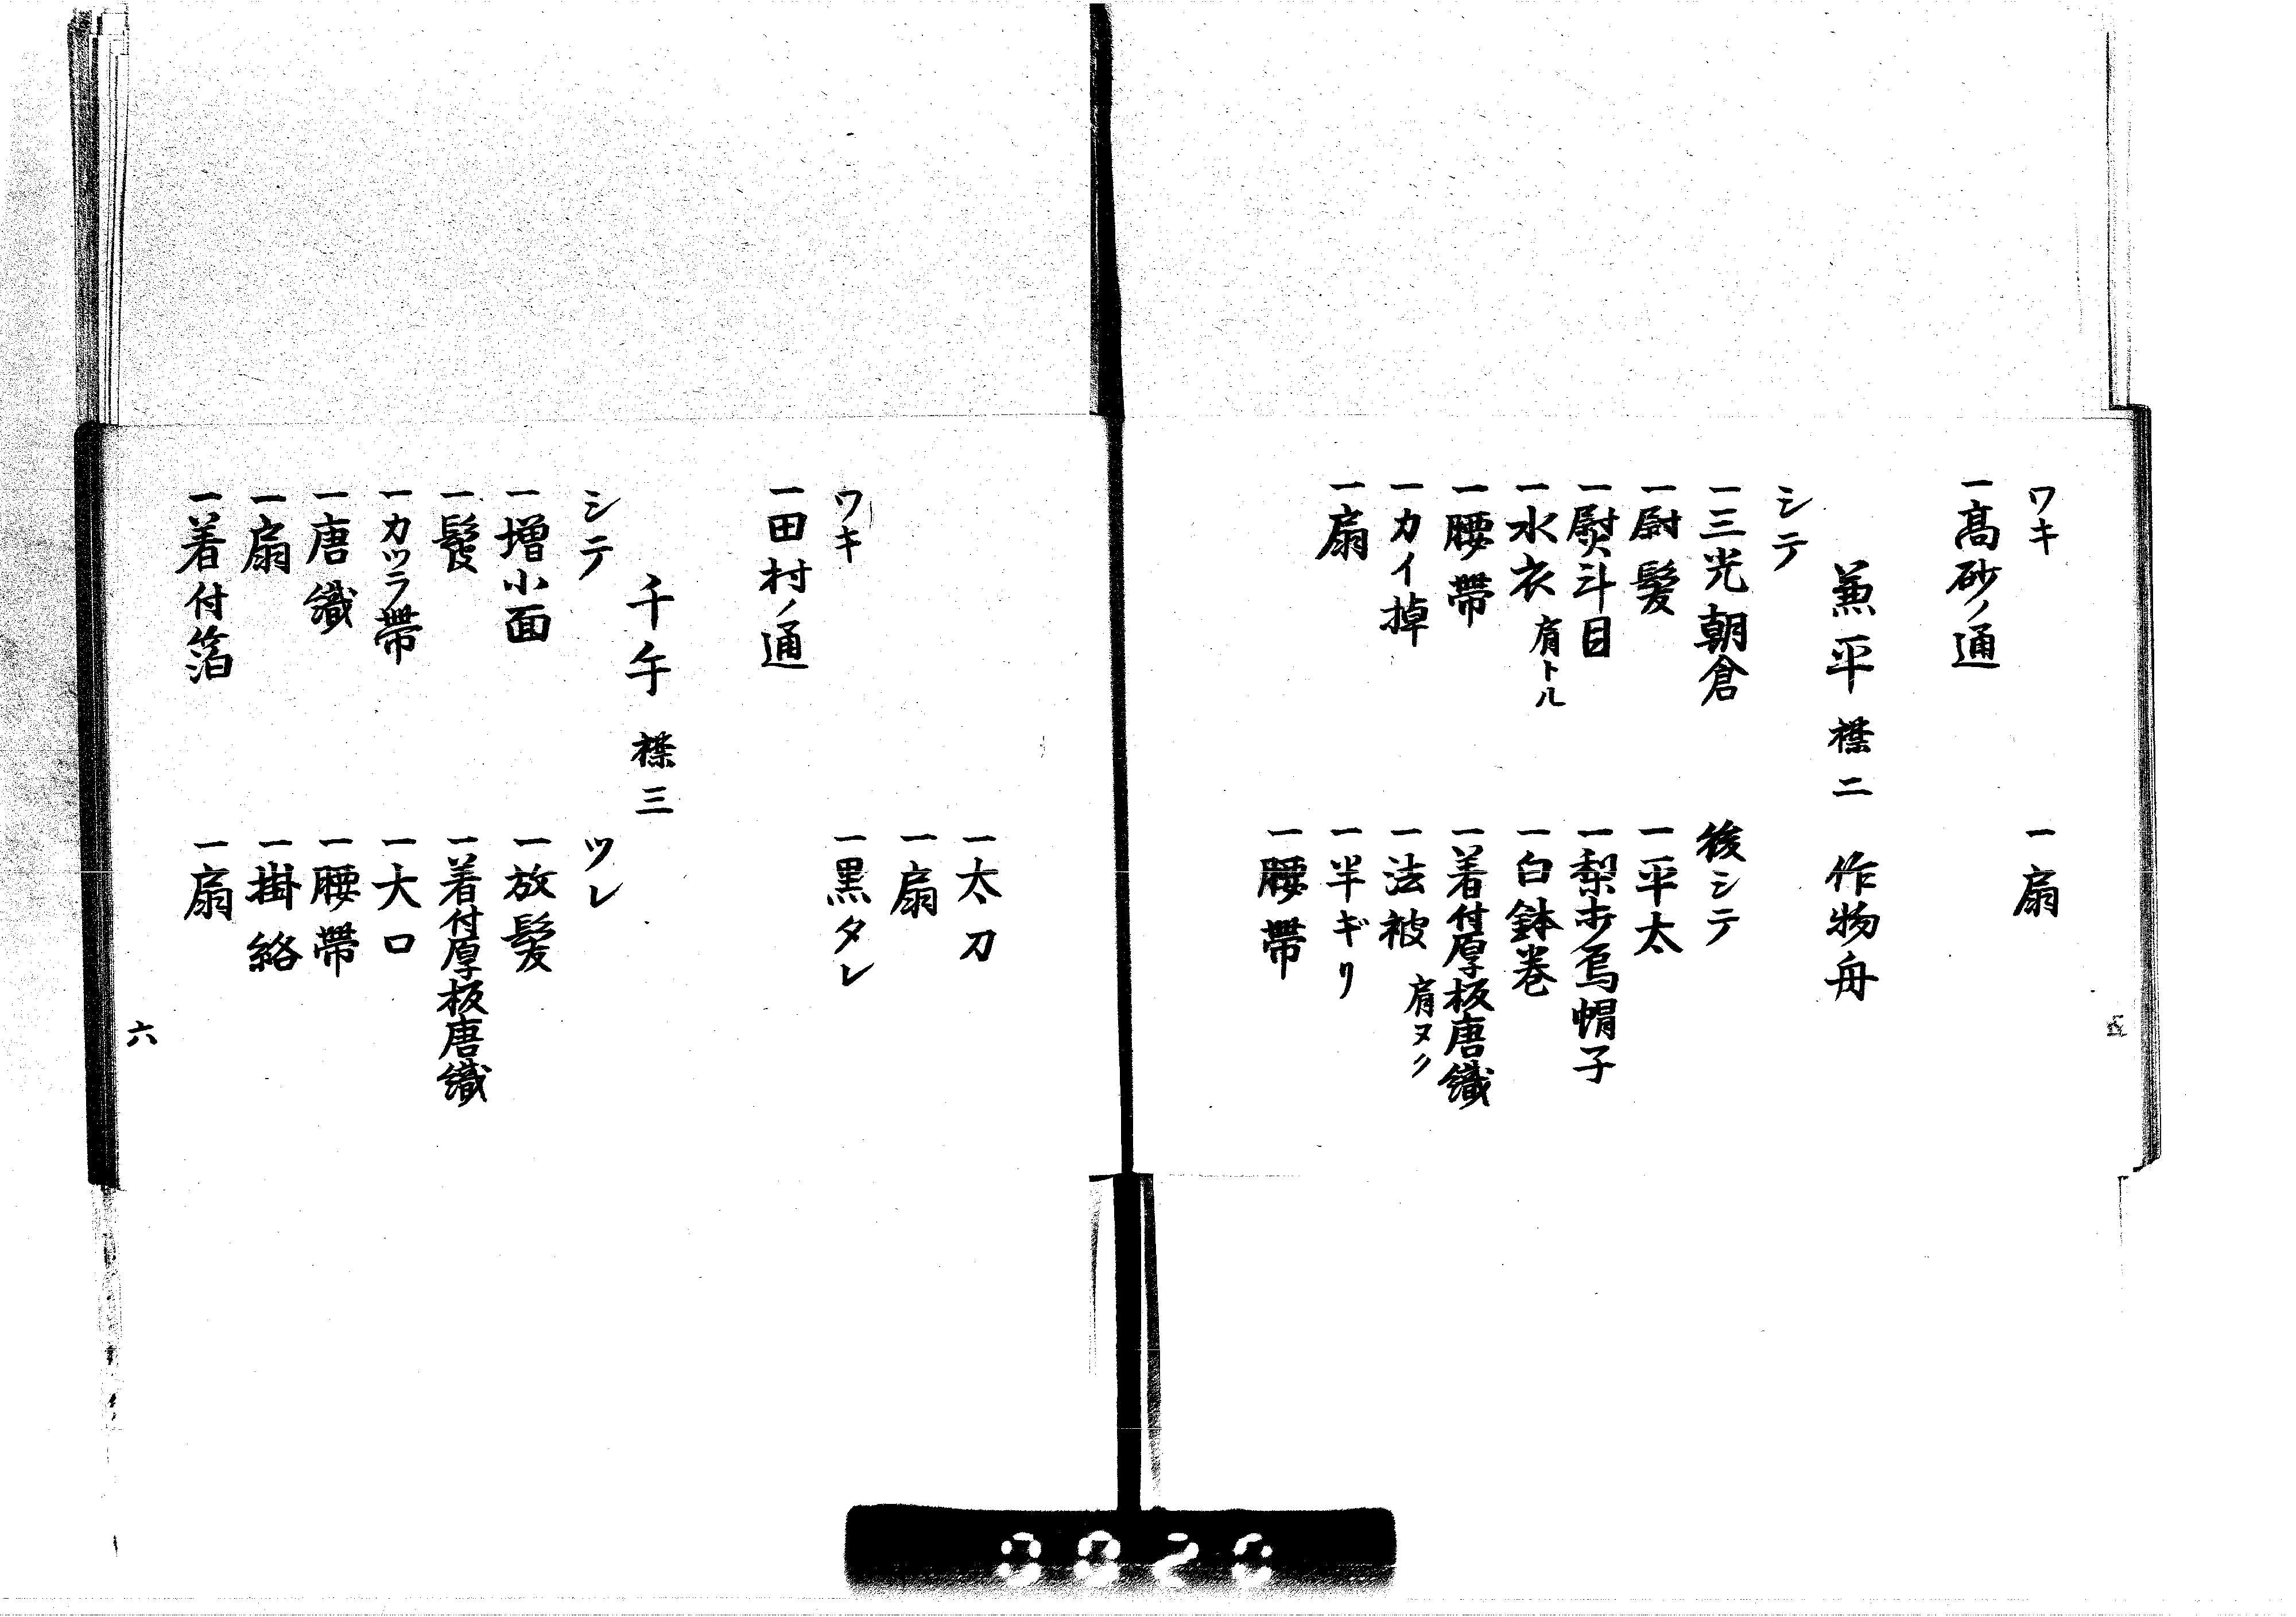 五
ワキ
一扇
一高砂ノ通
兼平 襟二 作物舟
シテ
一三光朝倉
後シテ
一尉髪
一平太
一熨斗目
一梨打烏帽子
一水衣 肩トル
一白鉢巻
一腰帯
一着付厚板唐織
一カイ棹
一法被 肩ヌク
一扇
一半ギリ
一腰帯
一太刀
一扇
ワキ
一黒タレ
一田村ノ通
千手 襟三
シテ
ツレ
一増小面
一放髪
一鬘
一着付厚板唐織
一カツラ帯
一大口
一唐織
一腰帯
一扇
一掛絡
一着付箔
一扇
六